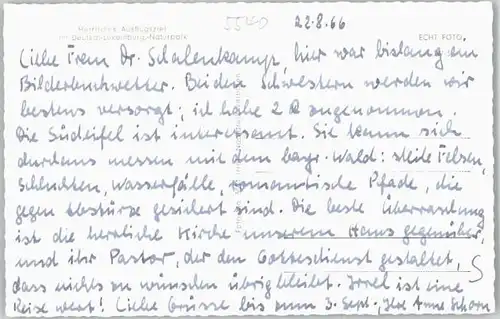 5540
22.8.66
Herrliches Ausflugsziel
im Deutsch-Luxemburg. Naturpark
ECHT FOTO
Liebe Frau Dr. Schalenkamp, hier war bislang ein
Bilderbuchwetter. Bei den Schwestern werden wir
bestens versorgt; ich habe 2 ℔ zugenommen.
Die Südeifel ist interessant. Sie kann sich
durchaus messen mit dem bayr. Wald: steile Felsen,
Schluchten, Wasserfälle, romantische Pfade, die
gegen Abstürze gesichert sind. Die beste Überraschung
ist die herrliche Kirche unserem Haus gegenüber,
und ihr Pastor, der den Gottesdienst gestaltet,
dass nichts zu wünschen übrig bleibt. Irrel ist eine
Reise wert! Liebe Grüsse bis zum 3. Sept., Ihre Anne